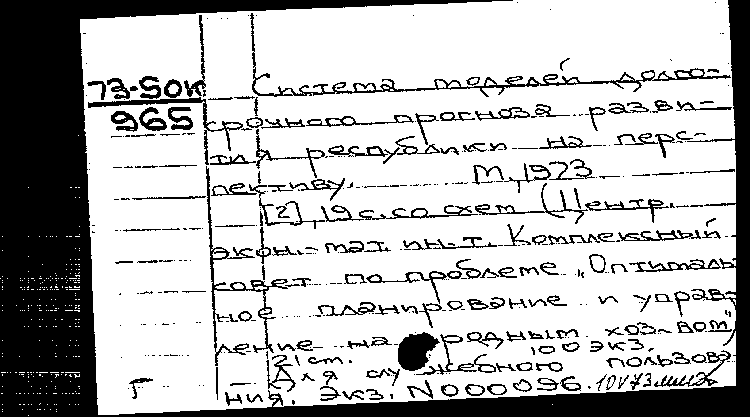 73-50к
965
Система моделей долго-
срочного прогноза разви-
тия республики на перс-
пективу. М., 1973.
[2], 19 с. со схем (Центр.
экон.-мат. ин-т. Комплексный
совет по проблеме „Оптималь-
ное планирование и управ-
ление народным хоз-вом")
21 ст. 100 экз.
— Для служебного пользова-
ния. Экз. N000096.
Г